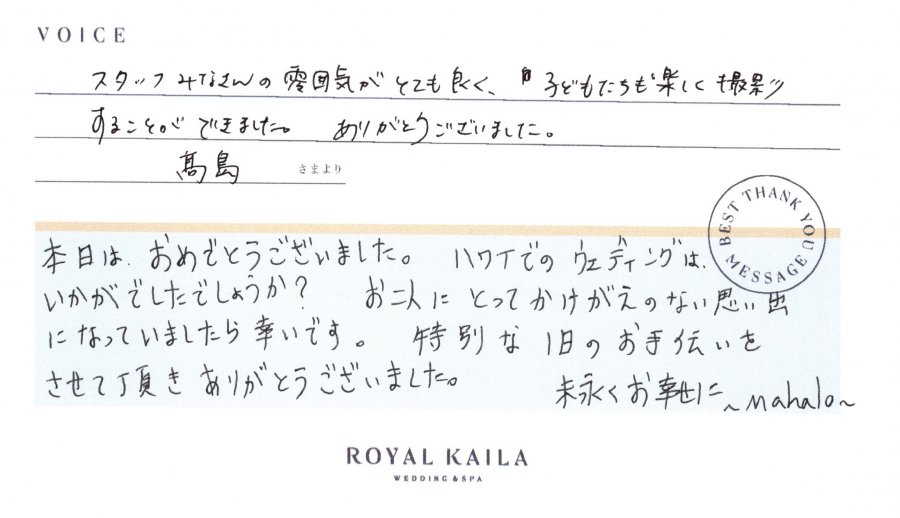 VOICE
スタッフみなさんの雰囲気がとても良く、子どもたちも楽しく撮影
することができました。 ありがとうございました。
髙島 さまより
BEST THANK YOU MESSAGE
本日は、おめでとうございました。 ハワイでのウェディングは、
いかがでしたでしょうか? お二人にとってかけがえのない思い出
になっていましたら幸いです。 特別な1日のお手伝いを
させて頂きありがとうございました。
末永くお幸せに ~Mahalo~
ROYAL KAILA
WEDDING & SPA